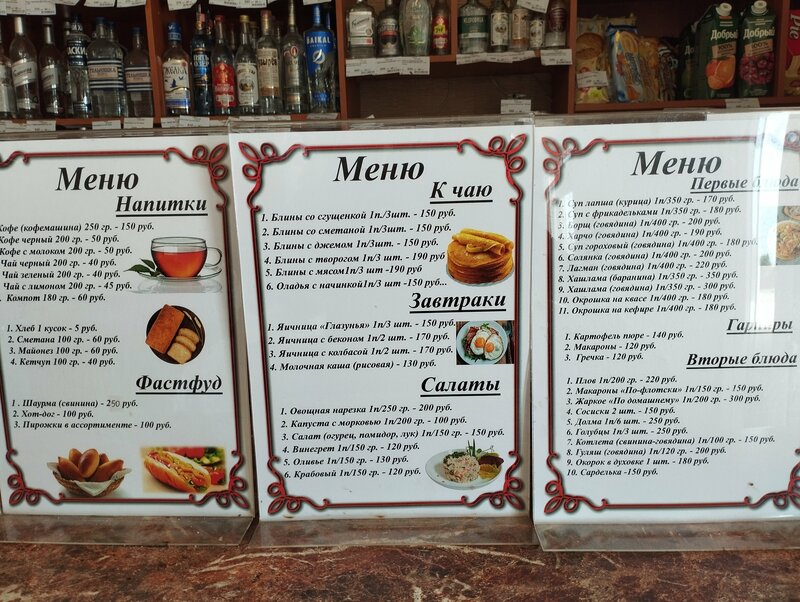 BAIKAL
Добрый
Добрый
Меню
Напитки
Кофе (кофемашина) 250 гр. - 150 руб.
Кофе черный 200 гр. - 50 руб.
Кофе с молоком 200 гр. - 50 руб.
Чай черный 200 гр. - 40 руб.
Чай зеленый 200 гр. - 40 руб.
Чай с лимоном 200 гр. - 45 руб.
Компот 180 гр. - 60 руб.
1. Хлеб 1 кусок - 5 руб.
2. Сметана 100 гр. - 60 руб.
3. Майонез 100 гр. - 60 руб.
4. Кетчуп 100 гр. - 40 руб.
Фастфуд
1. Шаурма (свинина) - 250 руб.
2. Хот-дог - 100 руб.
3. Пирожки в ассортименте - 100 руб.
Меню
К чаю
1. Блины со сгущенкой 1п/3шт. - 150 руб.
2. Блины со сметаной 1п/3шт. - 150 руб.
3. Блины с джемом 1п/3шт. - 150 руб.
4. Блины с творогом 1п/3 шт. - 190 руб
5. Блины с мясом1п/3 шт -190 руб
6. Оладья с начинкой1п/3 шт -150 руб...
Завтраки
1. Яичница «Глазунья» 1п/3 шт. - 150 руб.
2. Яичница с беконом 1п/2 шт. - 170 руб.
3. Яичница с колбасой 1п/2 шт. - 170 руб.
4. Молочная каша (рисовая) - 130 руб.
Салаты
1. Овощная нарезка 1п/250 гр. - 200 руб.
2. Капуста с морковью 1п/200 гр. - 100 руб.
3. Салат (огурец, помидор, лук) 1п/150 гр. - 150 руб.
4. Винегрет 1п/150 гр. - 120 руб.
5. Оливье 1п/150 гр. - 130 руб.
6. Крабовый 1п/150 гр. - 120 руб.
Меню
Первые блюда
1. Суп лапша (курица) 1п/350 гр. - 170 руб.
2. Суп с фрикадельками 1п/350 гр. - 180 руб.
3. Борщ (говядина) 1п/400 гр. - 200 руб.
4. Харчо (говядина) 1п/400 гр. - 190 руб.
5. Суп гороховый (говядина) 1п/400 гр. - 180 руб.
6. Солянка (говядина) 1п/400 гр. - 200 руб.
7. Лагман (говядина) 1п/400 гр. - 220 руб.
8. Хашлама (баранина) 1п/350 гр. - 350 руб.
9. Хашлама (говядина) 1п/350 гр. - 300 руб.
10. Окрошка на квасе 1п/400 гр. - 180 руб.
11. Окрошка на кефире 1п/400 гр. - 180 руб.
Гарниры
1. Картофель пюре - 140 руб.
2. Макароны - 120 руб.
3. Гречка - 120 руб.
Вторые блюда
1. Плов 1п/200 гр. - 220 руб.
2. Макароны «По-флотски» 1п/150 гр. - 150 руб.
3. Жаркое «По домашнему» 1п/200 гр. - 300 руб.
4. Сосиски 2 шт. - 150 руб.
5. Долма 1п/6 шт. - 250 руб.
6. Голубцы 1п/3 шт. - 250 руб.
7. Котлета (свинина-говядина) 1п/100 гр. - 150 руб.
8. Гуляш (говядина) 1п/120 гр. - 200 руб.
9. Окорок в духовке 1 шт. - 180 руб.
10. Сарделька -150 руб.